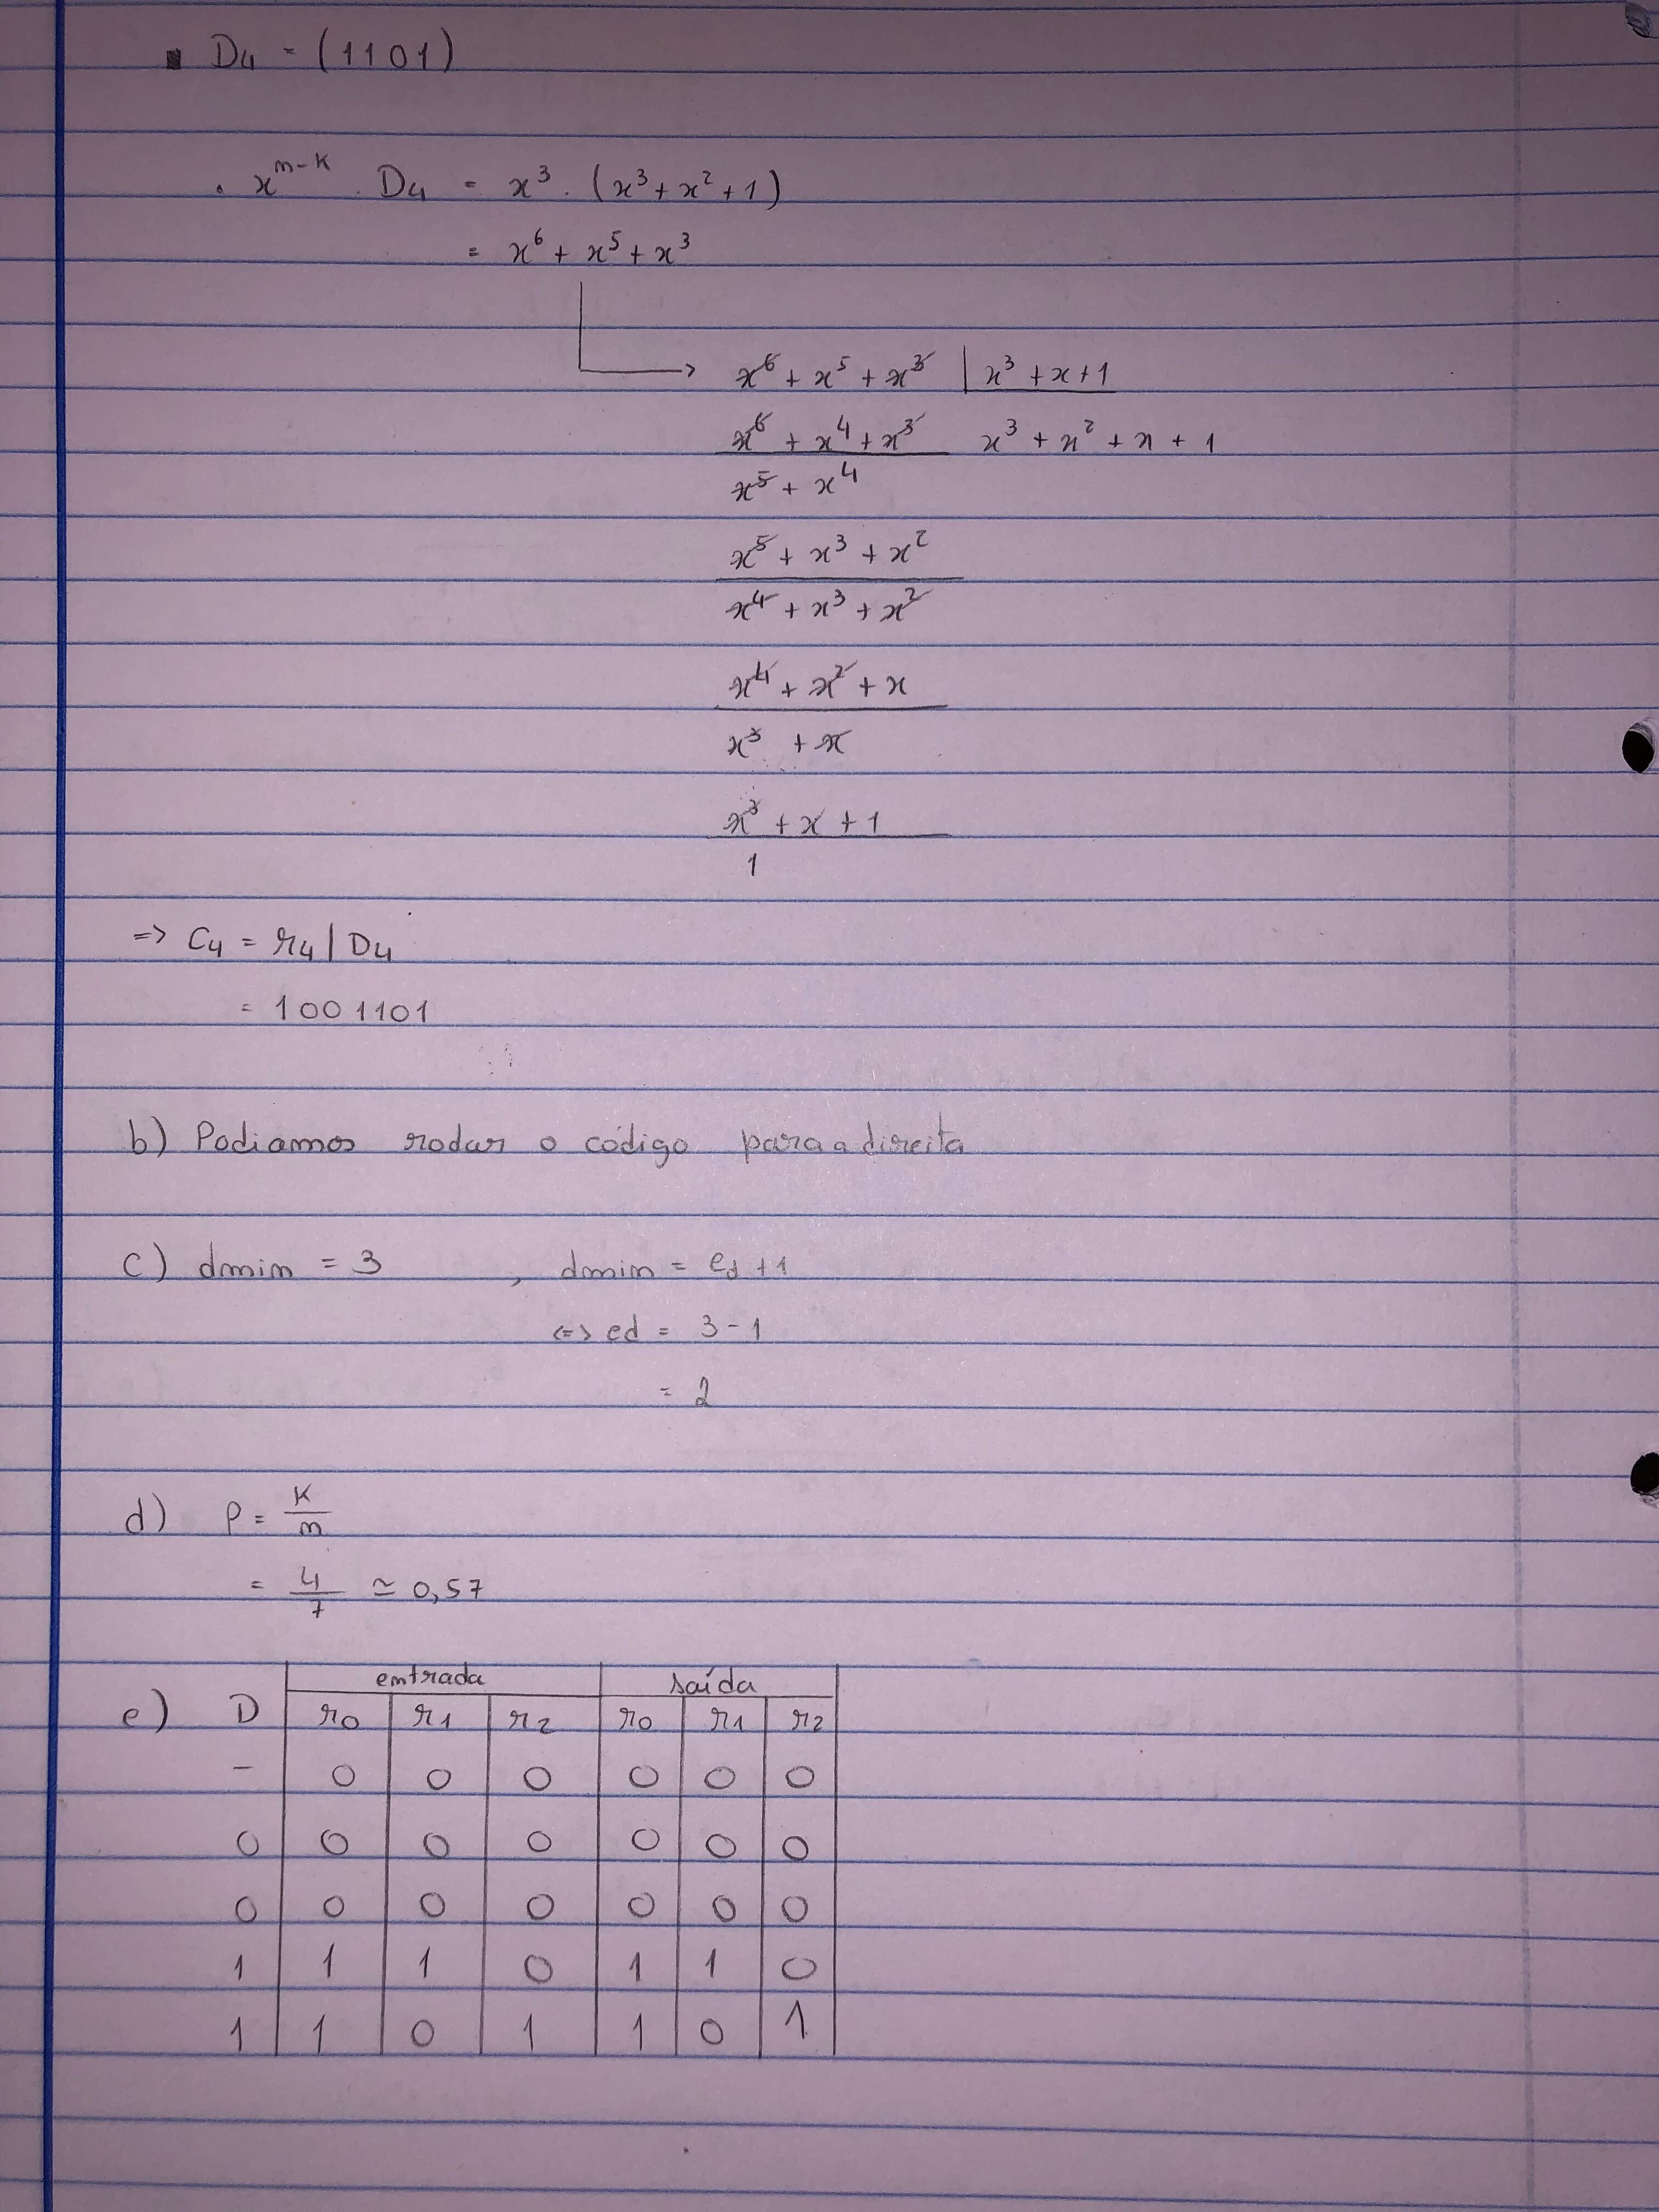 D4 = (1101)
. x^(n-k) . D4 = x^3 . (x^3 + x^2 + 1)
= x^6 + x^5 + x^3
x^6 + x^5 + x^3 | x^3 + x + 1
x^6 + x^4 + x^3 x^3 + x^2 + x + 1
x^5 + x^4
x^5 + x^3 + x^2
x^4 + x^3 + x^2
x^4 + x^2 + x
x^3 + x
x^3 + x + 1
1
=> C4 = r4 | D4
= 1001101
b) Podiamos rodar o código para a direita
c) dmin = 3 , dmin = ed + 1
<=> ed = 3 - 1
= 2
d) ρ = K/n
= 4/7 ≃ 0,57
entrada saída
e) D r0 r1 r2 r0 r1 r2
- 0 0 0 0 0 0
0 0 0 0 0 0 0
0 0 0 0 0 0 0
1 1 1 0 1 1 0
1 1 0 1 1 0 1